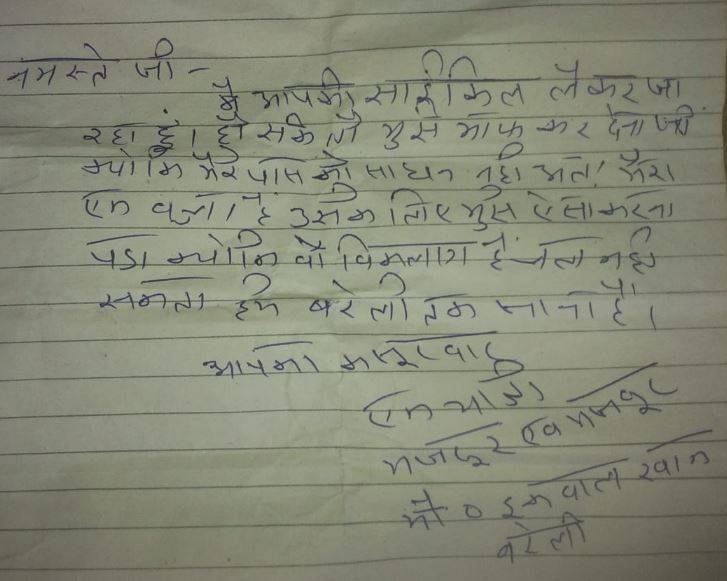 नमस्ते जी -
मैं आपकी साईकिल लेकर जा
रहा हूं। हो सके तो मुझे माफ कर देना जी
क्योंकि मेरे पास को साधन नही अतः मेरा
एक बच्चा है उसके लिए मुझे ऐसा करना
पडा क्योंकि वो विकलांग है चल नही
सकता हमे बरेली तक जाना है।
आपका कसूरवार
एक यात्री
मजदूर एवं मजबूर
मो० इकबाल खान
बरेली